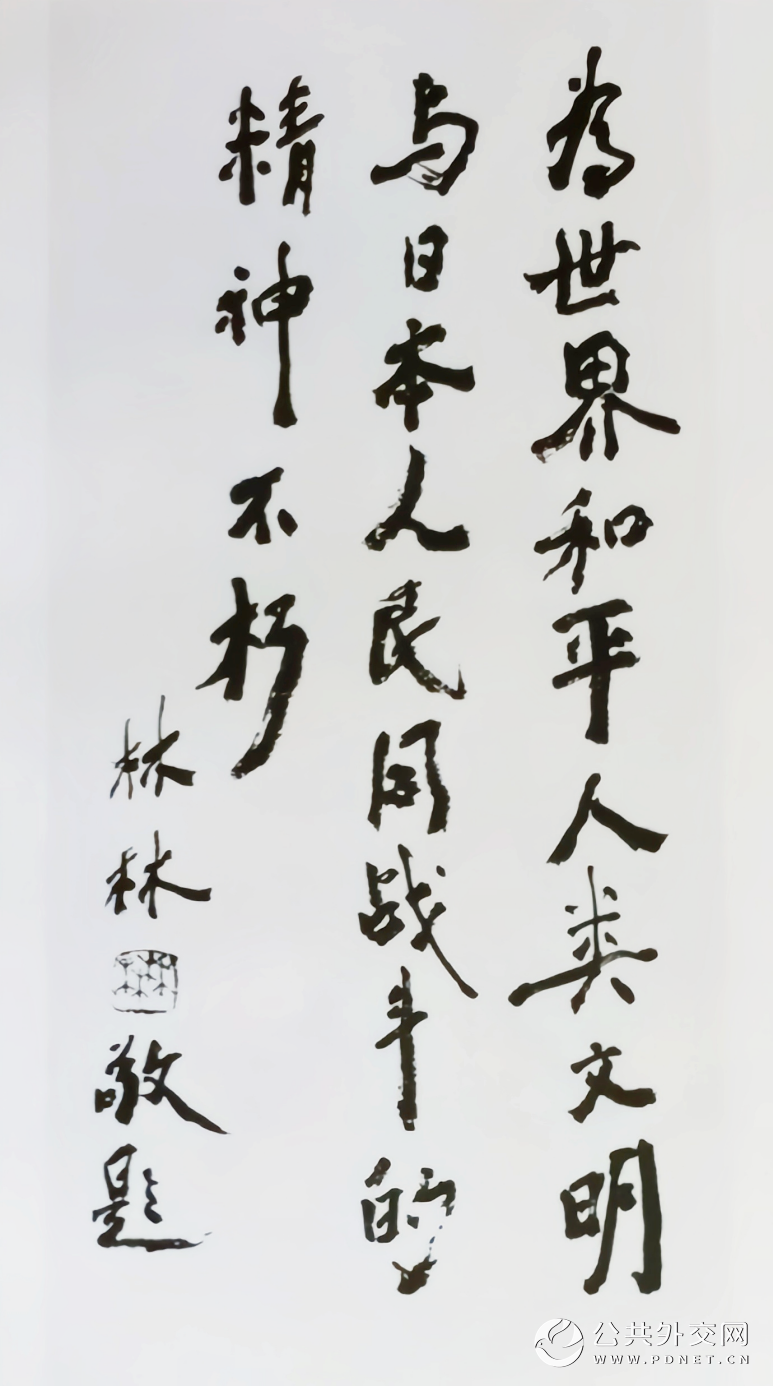 为世界和平人类文明
与日本人民同战斗的
精神不朽
林林
敬题
公共外交网
WWW.PDNET.CN